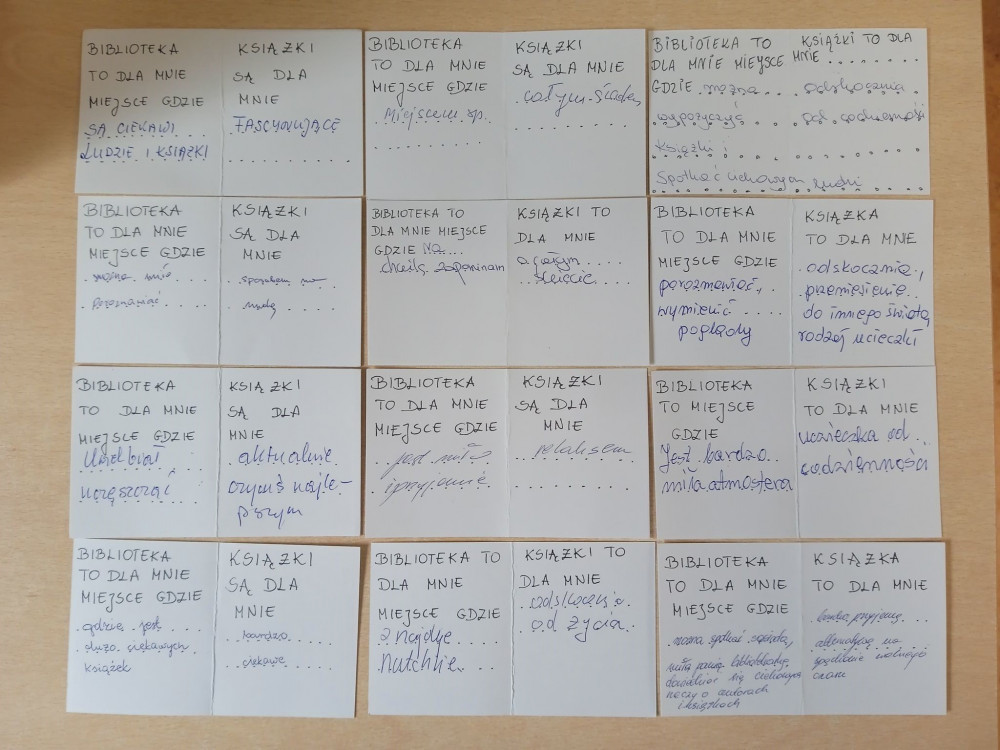 BIBLIOTEKA
TO DLA MNIE
MIEJSCE GDZIE
SĄ CIEKAWI
LUDZIE I KSIĄŻKI
KSIĄŻKI
SĄ DLA
MNIE
FASCYNUJĄCE
BIBLIOTEKA
TO DLA MNIE
MIEJSCE GDZIE
Miejscem
KSIĄŻKI
SĄ DLA MNIE
całym
BIBLIOTEKA TO
DLA MNIE MIEJSCE
GDZIE można
wypożyczyć
książki i
Spotkać ciekawych ludzi
KSIĄŻKI TO DLA
MNIE
odskocznia
od codzienności
BIBLIOTEKA
TO DLA MNIE
MIEJSCE GDZIE
można
KSIĄŻKI
SĄ DLA
MNIE
sposobem na
nudę
BIBLIOTEKA TO
DLA MNIE MIEJSCE
GDZIE na
chwilę zapominam
KSIĄŻKI TO
DLA MNIE
BIBLIOTEKA
TO DLA MNIE
MIEJSCE GDZIE
porozmawiać,
wymienić
poglądy
KSIĄŻKA
TO DLA MNIE
odskocznia,
przeniesienie
do innego świata,
rodzaj ucieczki
BIBLIOTEKA
TO DLA MNIE
MIEJSCE GDZIE
uczęszczać
KSIĄŻKI
SĄ DLA
MNIE
aktualnie
czymś najle-
pszym
BIBLIOTEKA
TO DLA MNIE
MIEJSCE GDZIE
jest miło
i przyjemnie
KSIĄŻKI
SĄ DLA
MNIE
relaksem
BIBLIOTEKA
TO MIEJSCE
GDZIE
Jest bardzo
miła atmosfera
KSIĄŻKI
TO DLA MNIE
ucieczka od
codzienności
BIBLIOTEKA
TO DLA MNIE
MIEJSCE GDZIE
gdzie jest
dużo ciekawych
książek
KSIĄŻKI
SĄ DLA
MNIE
bardzo
ciekawe
BIBLIOTEKA TO
DLA MNIE
MIEJSCE GDZIE
znajdę
natchnie
KSIĄŻKI TO
DLA MNIE
odskocznia
od życia
BIBLIOTEKA
TO DLA MNIE
MIEJSCE GDZIE
można spotkać sąsiadkę,
miłą panią bibliotekarkę,
dowiedzieć się ciekawych
rzeczy o autorach
i książkach
KSIĄŻKA
TO DLA MNIE
alternatywą na
spędzanie wolnego
czasu